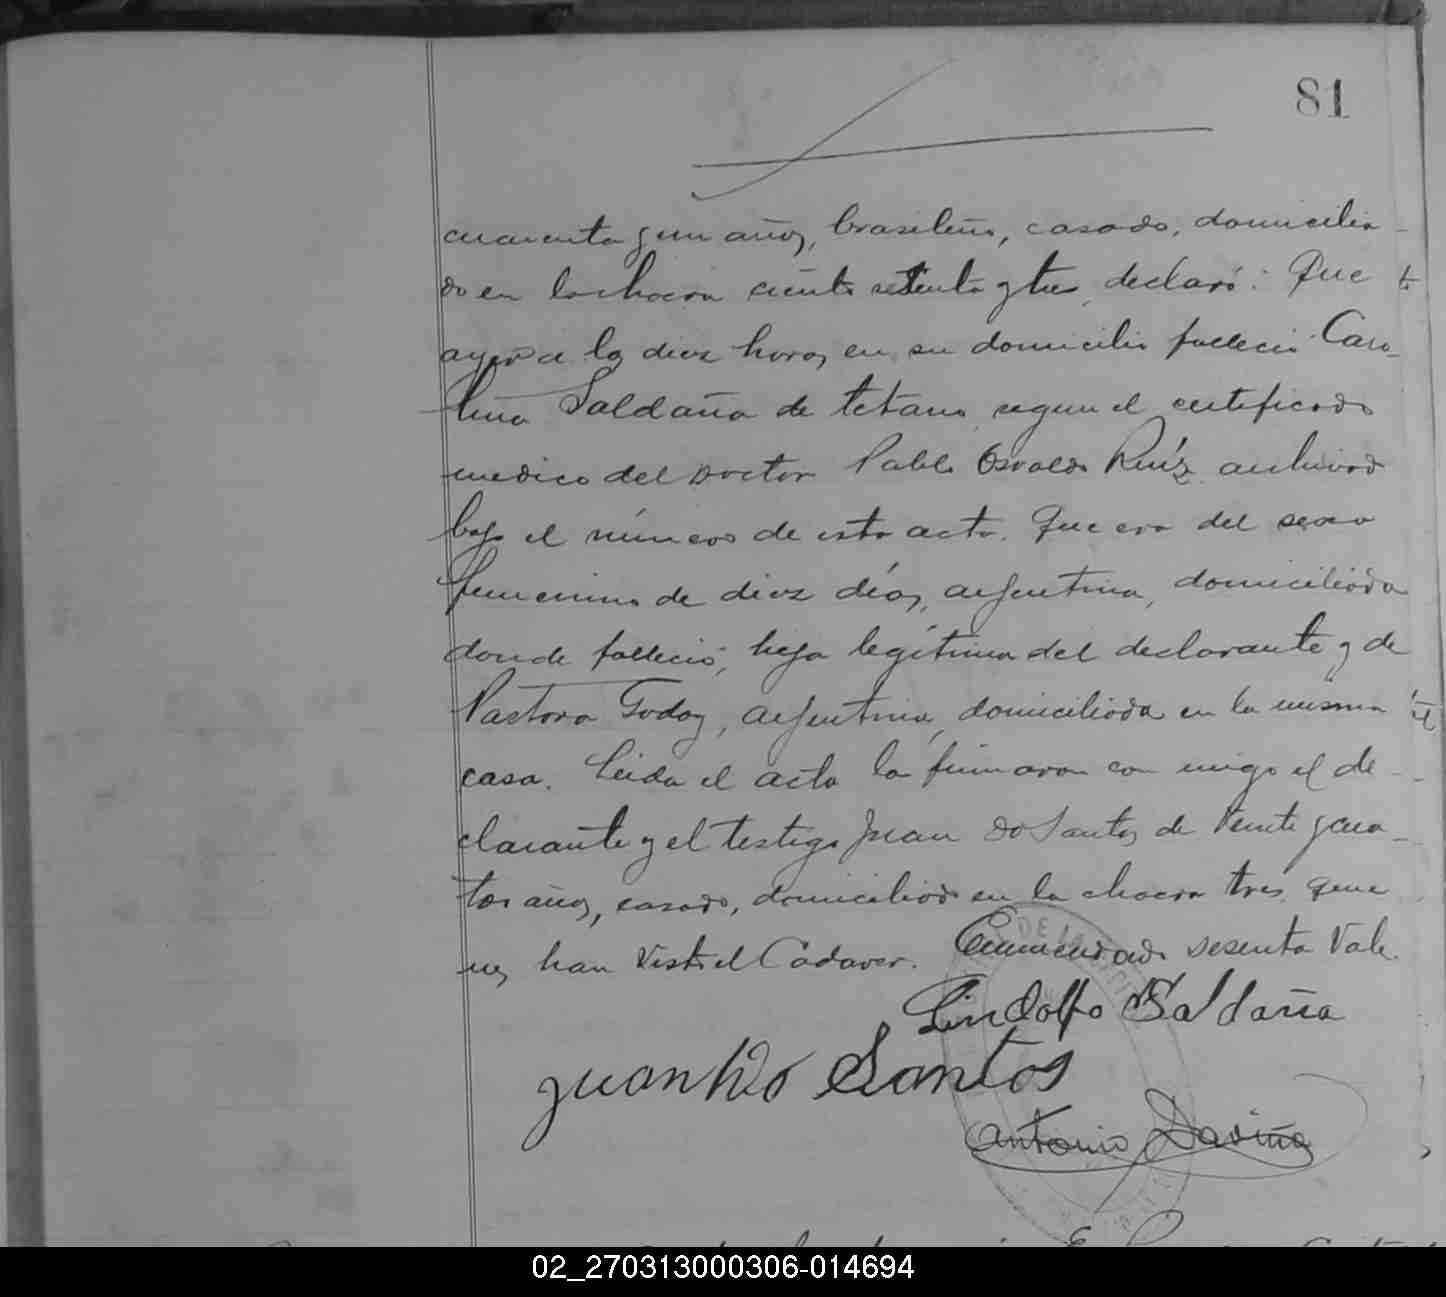 81
cuarenta y un años, brasileño, casado, domicilia-
do en la chacra ciento setenta y tres, declaró: Que
ayer a las diez horas, en su domicilio falleció Caro-
lina Saldaña de tetano, segun el certificado
medico del Doctor Pablo Osvaldo Ruíz archivado
bajo el número de esta acta. Que era del sexo
femenino de diez días, argentina, domiciliada
donde falleció, hija legítima del declarante y de
Pastora Godoy, argentina, domiciliada en la misma
casa. Leida el acta la firmaron con migo el de-
clarante y el testigo Juan do Santos de Veinte y cua-
tro años, casado, domiciliado en la chacra tres, quie
nes han Visto el Cadaver. Enmendado sesenta Vale.
Lindolfo Saldaña
Juan Do Santos
Antonio Daviña
02_270313000306-014694